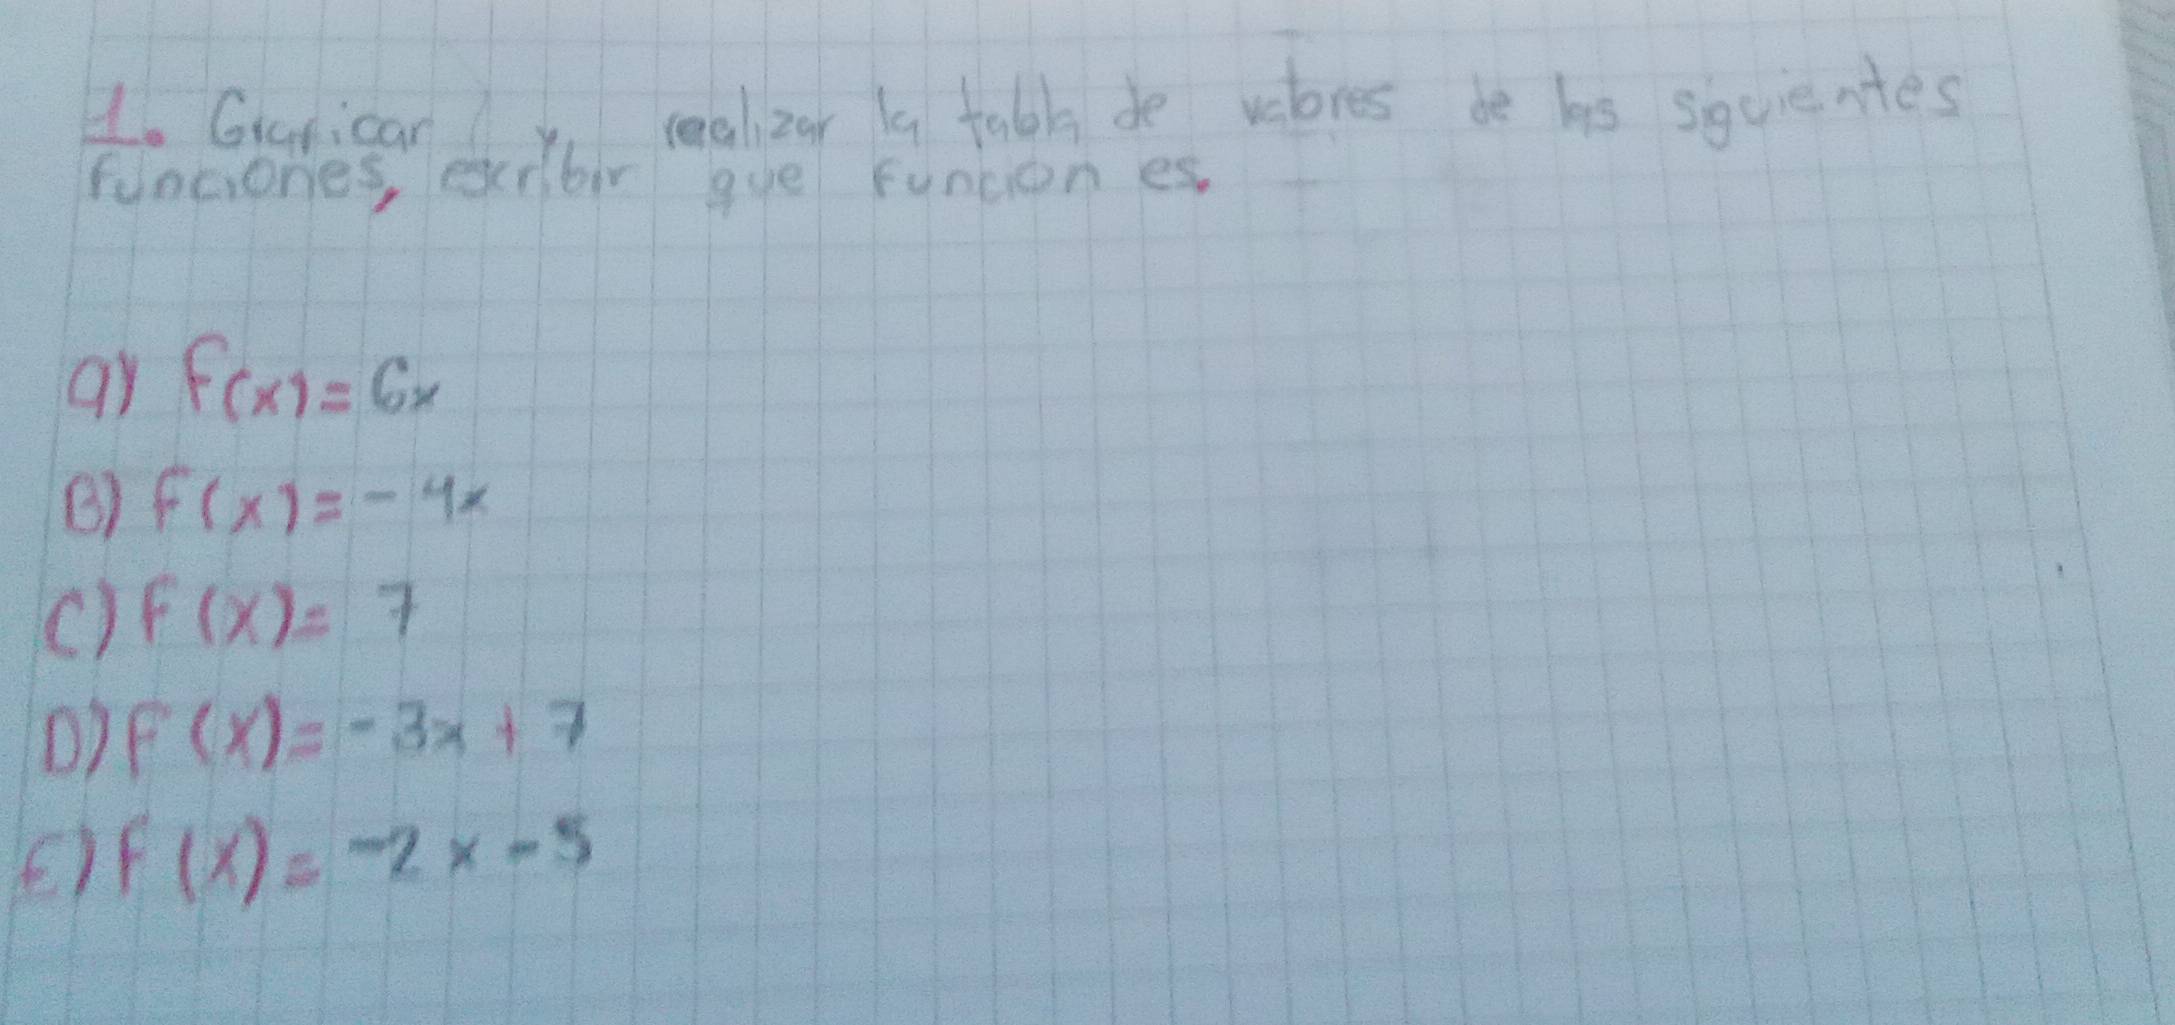 1. Graficar y realizar la tabla de valores de las siguientes
funciones, escribir que funcion es.
a) f(x) = 6x
B) f(x) = - 4x
C) f(x) = 7
D) F(x) = - 3x + 7
E) f(x) = -2x - 5